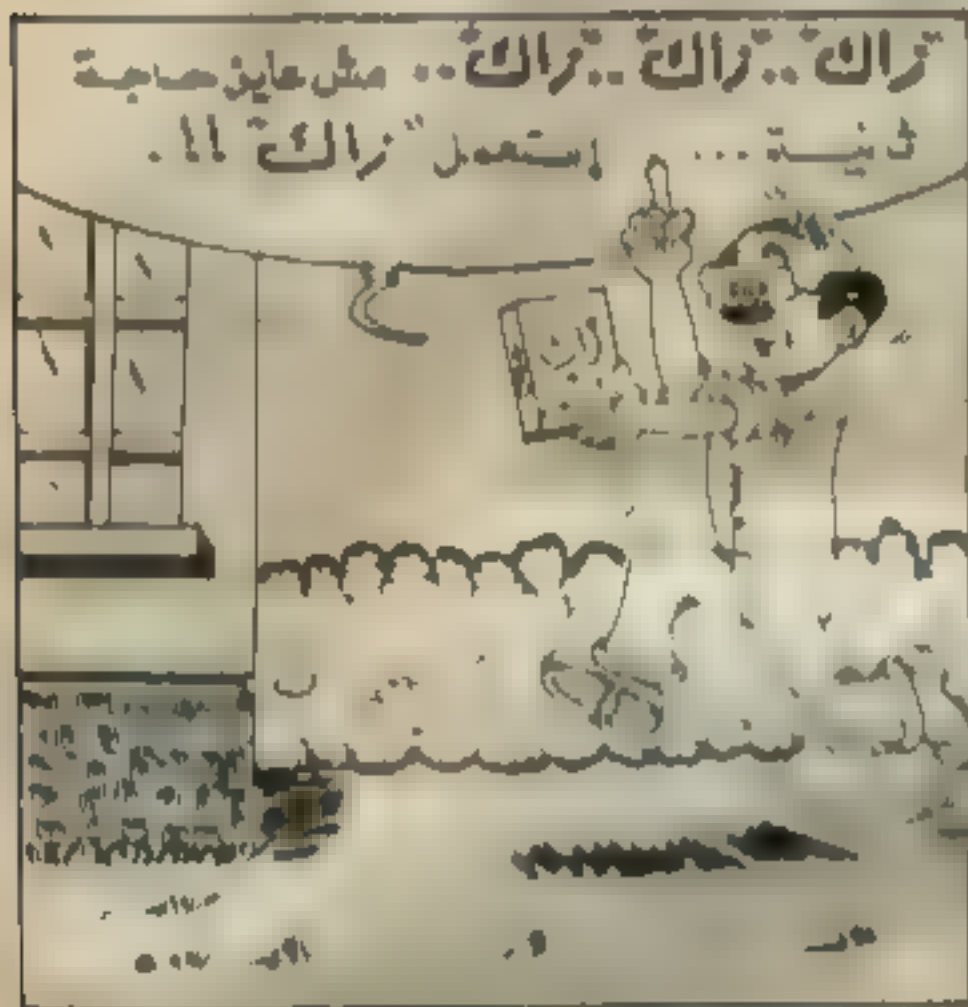 "زاك".. "زاك".. "زاك".. مش عايز صابية
ثنية ... إستعمل "زاك" !!.